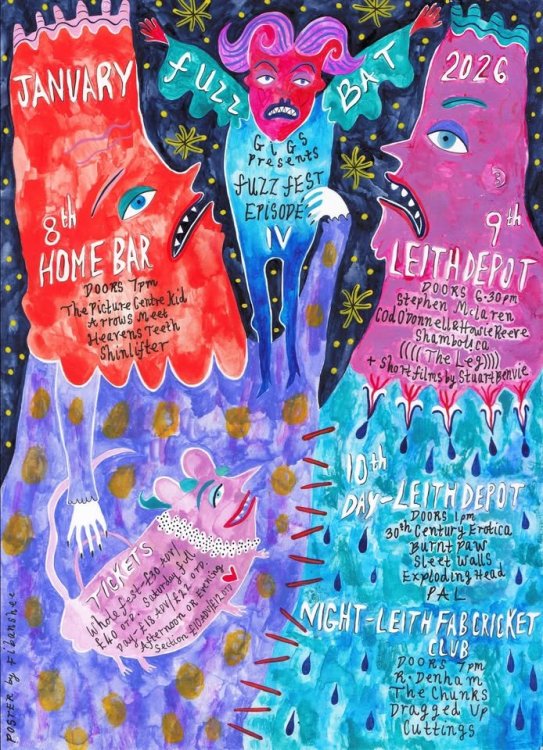 JANUARY
FUZZ BAT
2026
GIGS
Presents
FUZZ FEST
EPISODE
IV
8th
HOME BAR
DOORS 7pm
The Picture Centre Kid
Arrows Meet
Heavens Teeth
Shinlifter
9th
LEITH DEPOT
DOORS 6.30pm
Stephen McLaren
Cod O'Donnell & Howie Reeve
Shambolica
((((( The Leg))))
+ short films by Stuart Benvie
10th
DAY-LEITH DEPOT
DOORS 1pm
30th Century Erotica
Burnt Paw
Sleet Walls
Exploding Head
PAL
NIGHT-LEITH FAB CRICKET
CLUB
DOORS 7pm
R. Denham
The Chunks
Dragged Up
Cuttings
TICKETS
Whole fest-£30 ADV/
£40 OTD. Saturday full
Day-£18 ADV/£25 OTD.
Afternoon OR Evening
Section £10 ADV/£12 OTD
POSTER by Fibanshee